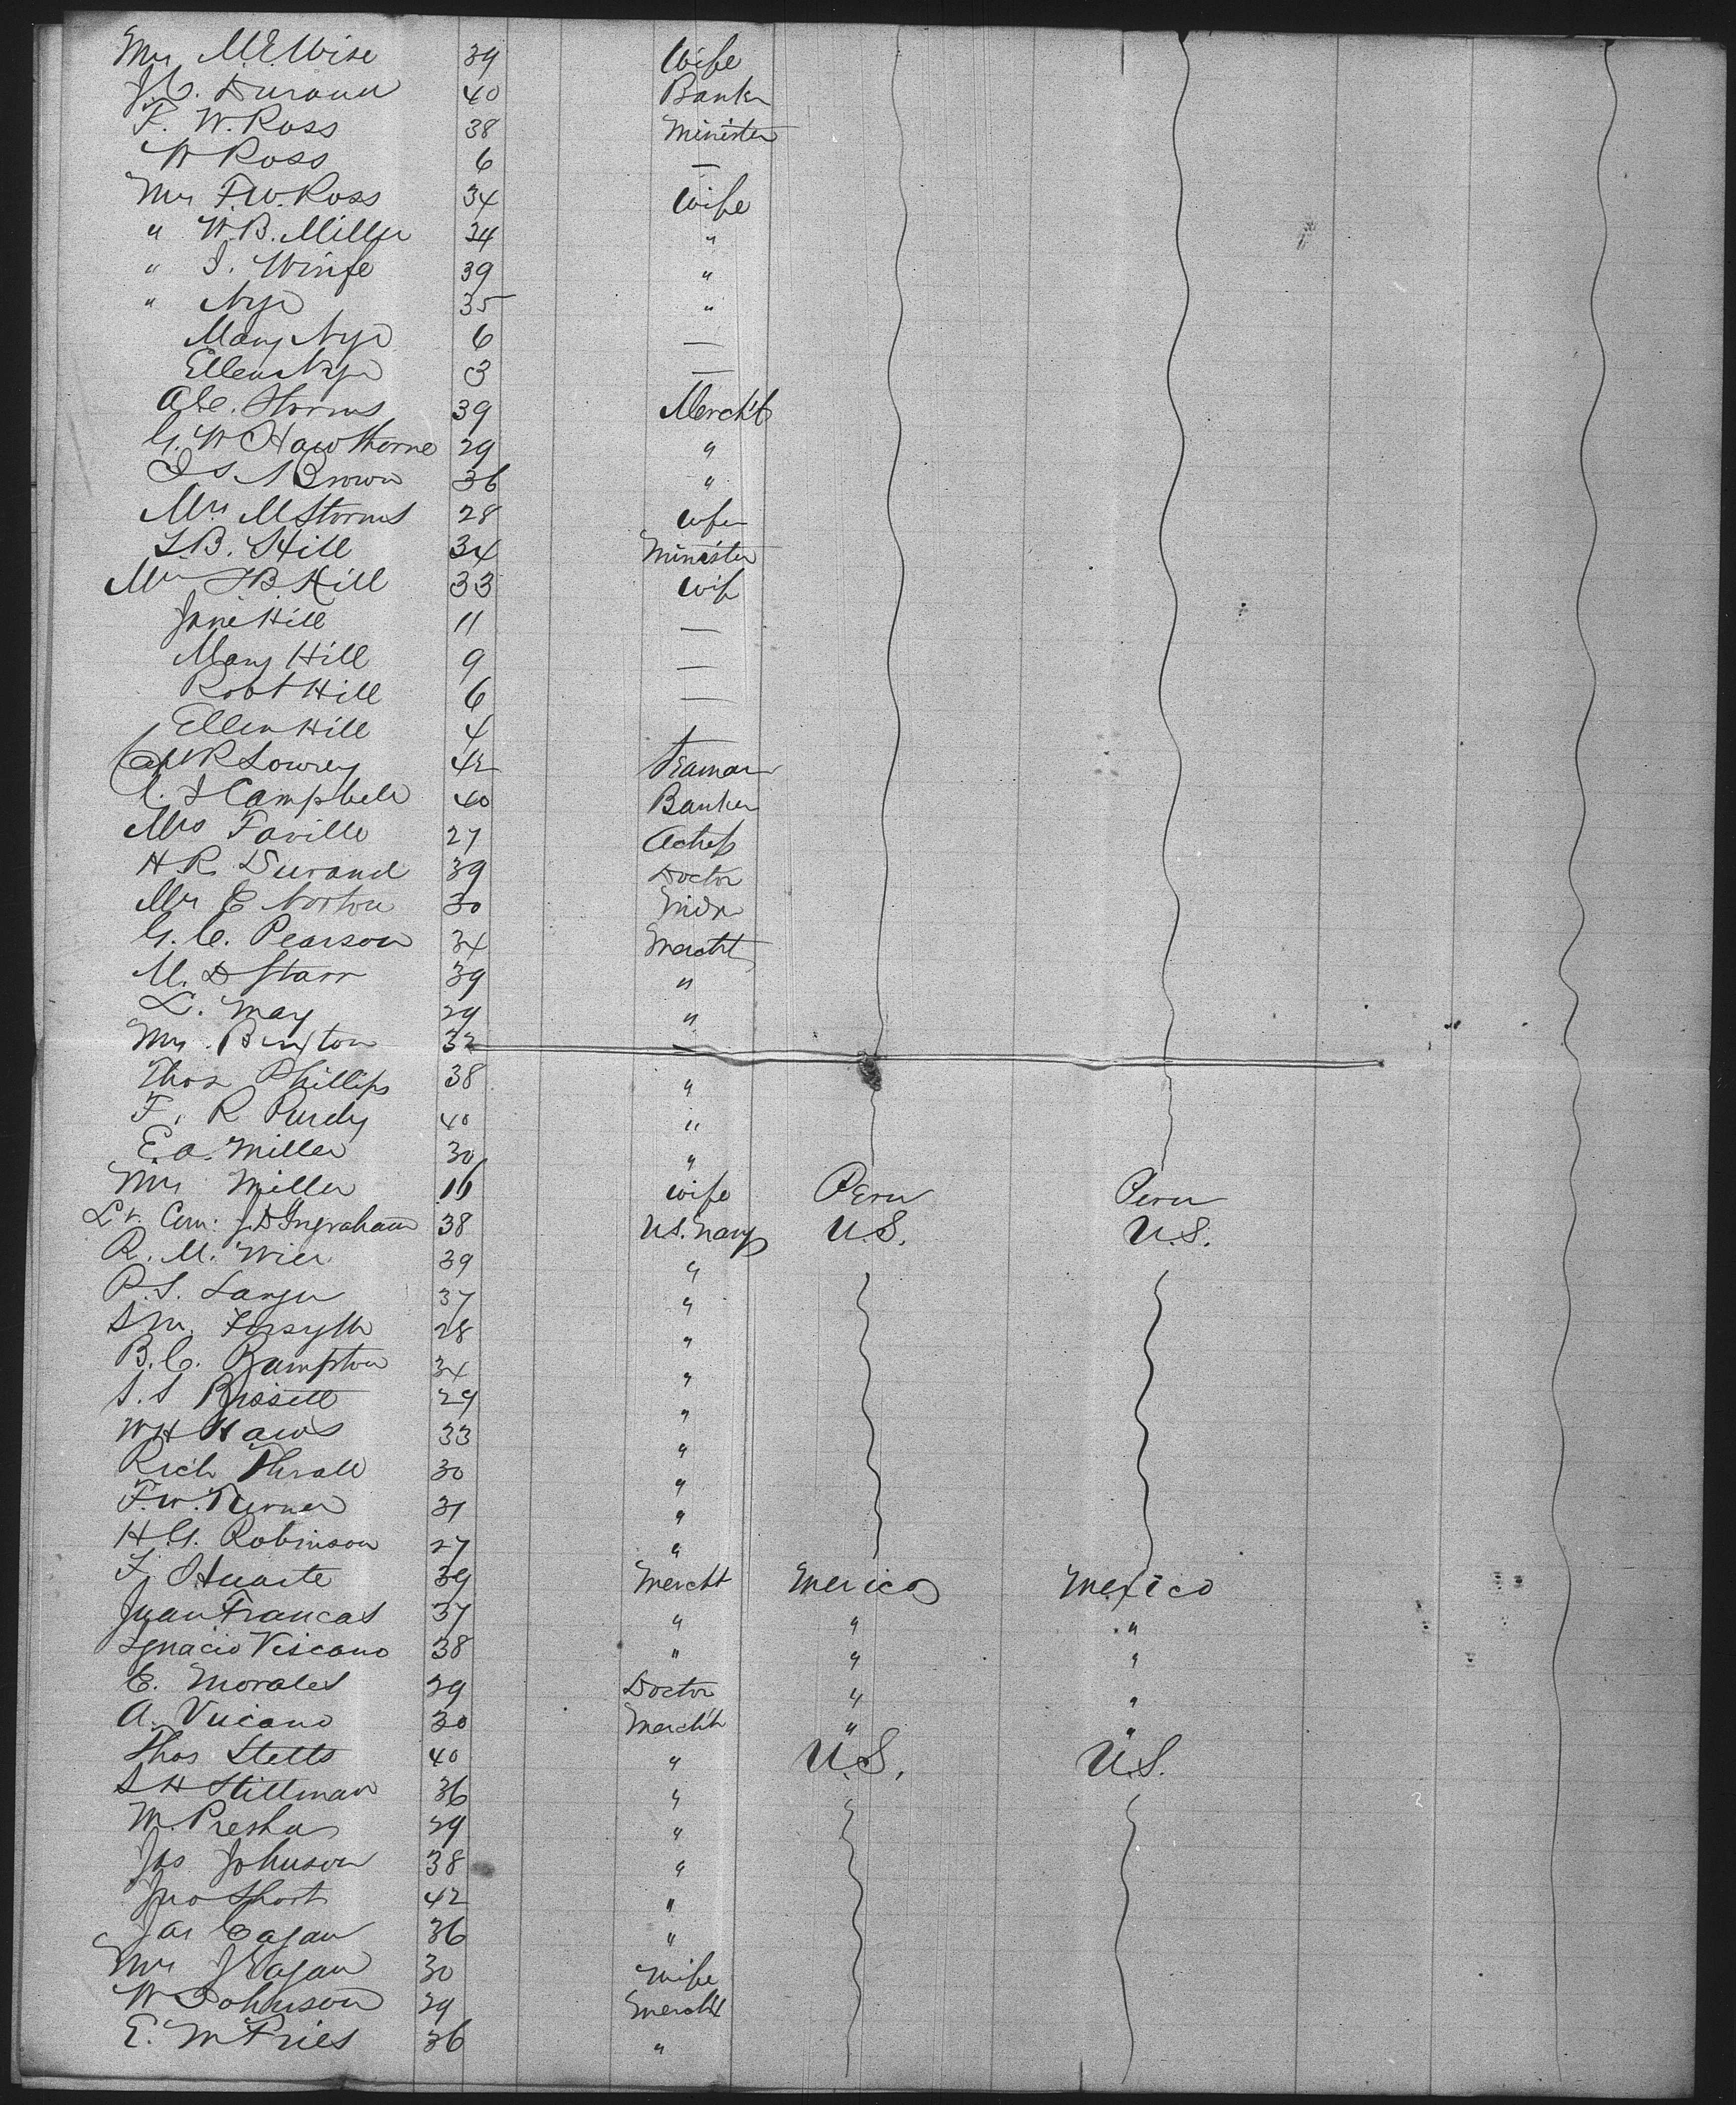 Mrs M.E. Wise 39 Wife
J.C. Durand 40 Banker
F. W. Ross 38 Minister
W Ross 6 —
Mrs F.W. Ross 34 Wife
" W.B. Miller 24 "
" J. Winfe 39 "
" Nye 35 "
Mary Nye 6 —
Ellen Nye 3 —
A.C. Storms 39 Mercht
G. W Hawthorne 29 "
J S Brown 36 "
Mrs M Storms 28 Wife
L.B. Hill 34 Minister
Mrs L B. Hill 33 Wife
Jane Hill 11 —
Mary Hill 9 —
Robt Hill 6 —
Ellen Hill 4
Capt R Lowrey 42 Seaman
C. J Campbell 40 Banker
Mrs Faville 27 Actress
H R. Durand 39 Doctor
Mrs E Norton 30
G. C. Pearson 34 Mercht
M. D Starr 39 "
L. May 29 "
Mrs Buxton 32
Thos Phillips 38 "
F. R Purdy 40 "
E. A. Miller 30 "
Mrs Miller 16 wife Peru Peru
Lt. Com: J.D Ingraham 38 U.S. Navy U.S. U.S.
R. M. Wier 39 "
P.S. Langer 37 "
S M. Forsyth 28 "
B.C. Bampton 34 "
S. S Bissell 29 "
W H Haws 33 "
Rich Thrall 30 "
F. W. Turner 31 "
H G. Robinson 27 "
F. Huarte 39 Mercht Mexico Mexico
Juan Francas 37 " " "
Ignacio Viscano 38 " " "
E. Morales 29 Doctor " "
A. Viscano 30 Mercht " "
Thos Stetts 40 " U.S. U.S.
S H Stillman 36 "
M. 29 "
Jas Johnson 38 "
Jno Short 42 "
Jas Eagan 36 "
Mrs J Eagan 30 Wife
W Johnson 29 Mercht
E. M Fries 36 "